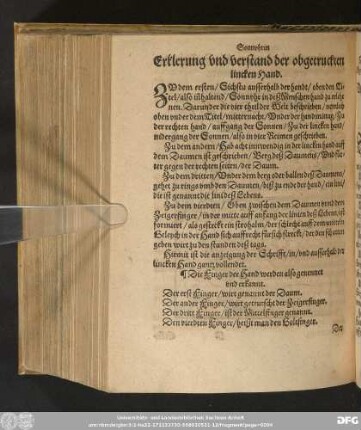 Sonnvhren
Erklerung vnd verstand der obgetruckten
lincken Hand.
ZVdem ersten / Sichstu ausserhalb der hendt / oben den Ti-
tel / also
nen. Darunder die vier theil der Welt beschrieben / nemlich
oben vnder dem Titel / mitternacht / Vnder der handmittag / Zu
der rechten hand / auffgang der Sonnen / Zu der lincken han
nidergang der Sonnen / also in vier Reimen geschrieben.
Zu dem andern / Hab acht inwendig in der lincken hand auff
dem Daumen ist geschrieben / Berg deß Daumens /
gegen der rechten seiten / der Daum.
Zu dem dritten / Vnder dem berg oder ballen deß Daumen /
gehet zu rings vmb den Daumen / biß zu ende der hand / ein lini /
die ist genannt die lini deß Lebens.
Zu dem vierdten / Oben zwischen dem Daumen vnd den
Zeigerfinger / in der mitte auff anfang der linien deß Lebens / ist
formiert / als gesteckt ein strohalm / der
in der Hand sich auffrecht für sich streckt / der den schatten
geben wirt zu den stunden deß tags.
Hiemit ist die anzeigung der Schrifft / in / vnd ausserhalb der
lincken Hand gantz vollendet.
¶ Die Finger der Hend werden also genennet
vnd erkannt.
Der erst Finger / wirt genannt der Daum.
Der ander Finger / wirt getruckt der Zeigerfinger.
Der dritt Finger / ist der Mittelfinger genannt.
Den vierdten Finger / heißt man den Goldfinger.
De
Universitäts- und Landesbibliothek Sachsen-Anhalt
DFG